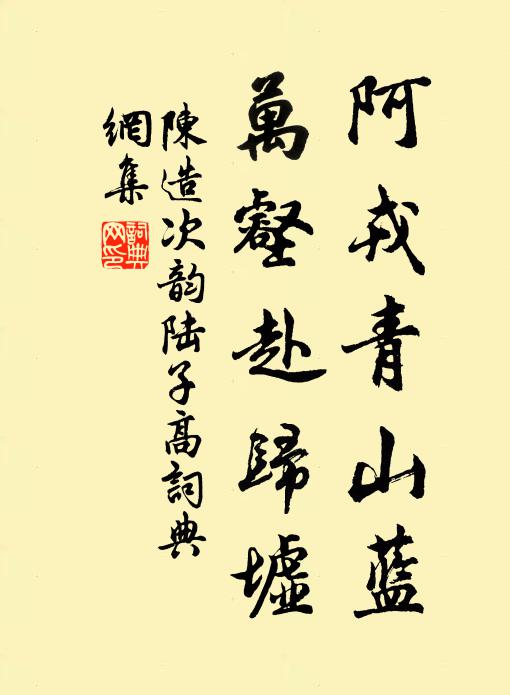 阿戎青山蓝
萬壑赴歸墟
陳造次韵陆子高詞典
網集
詞典网印